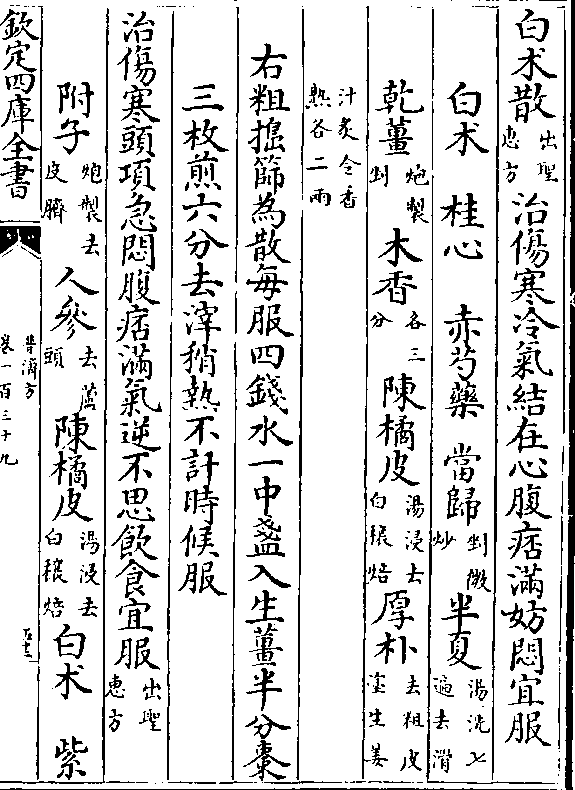 白术散出聖惠方治傷寒冷氣結在心腹痞滿妨悶宜服
白术 桂心 赤芍藥 當歸剉微炒 半夏湯洗七遍去滑
乾薑炮製剉 木香各三分 陳橘皮湯浸去白穰焙 厚朴去粗皮塗生姜
汁炙令香熟各二兩
右粗搗篩為散每服四錢水一中盞入生薑半分棗
三枚煎六分去滓稍熱不計時候服
治傷寒頭項急悶腹痞滿氣逆不思飲食宜服出聖惠方
附子炮製去皮臍 人參去蘆頭 陳橘皮湯浸去白穰焙 白术 紫
欽定四庫全書
普濟方
卷一百三十九